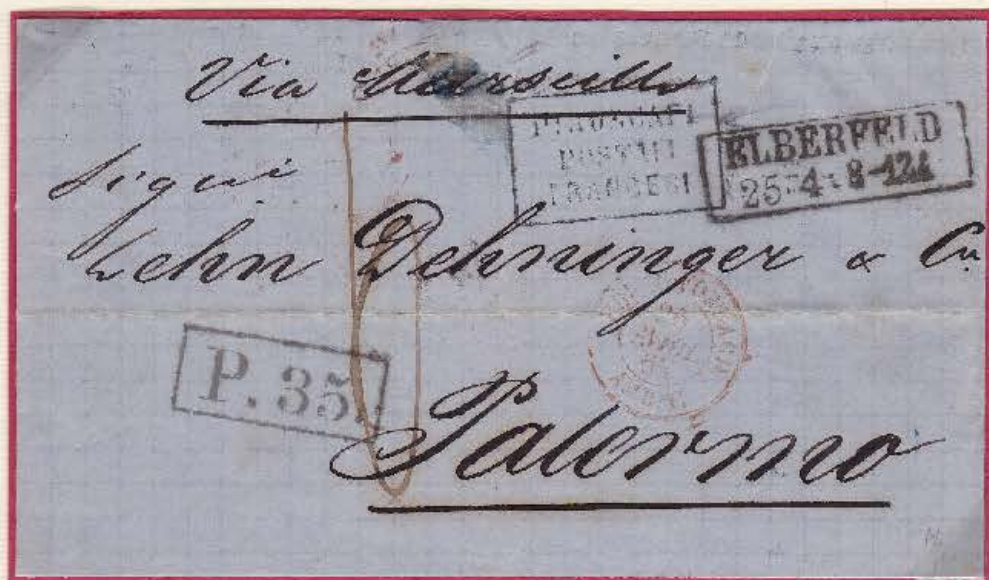 Via Marseille
PIROSCAFI
POSTALI
FRANCESI
ELBERFELD
25 4 8-12
Sigri
Dehninger & Co
P. 35
Palermo